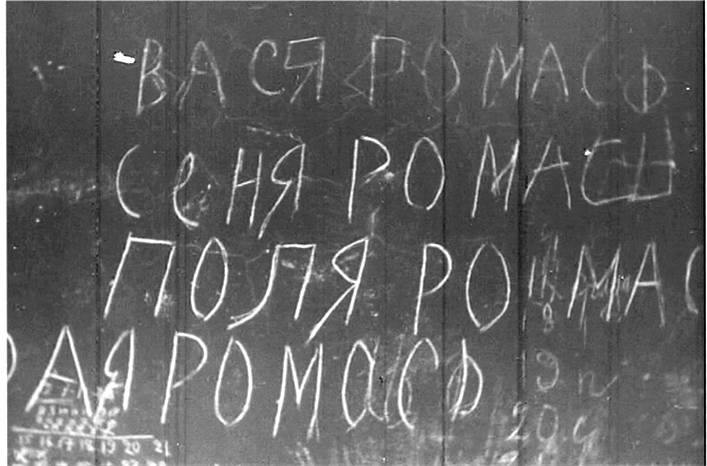 ВАСЯ РОМАСЬ
СеНЯ РОМАСЬ
ПОЛЯ РОМАС
РАЯ РОМАСЬ
9
20.4
15 16 17 18 19 20 21